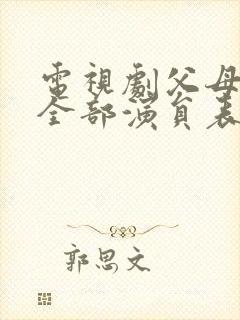 電視劇父母
全部演員表
郭思文